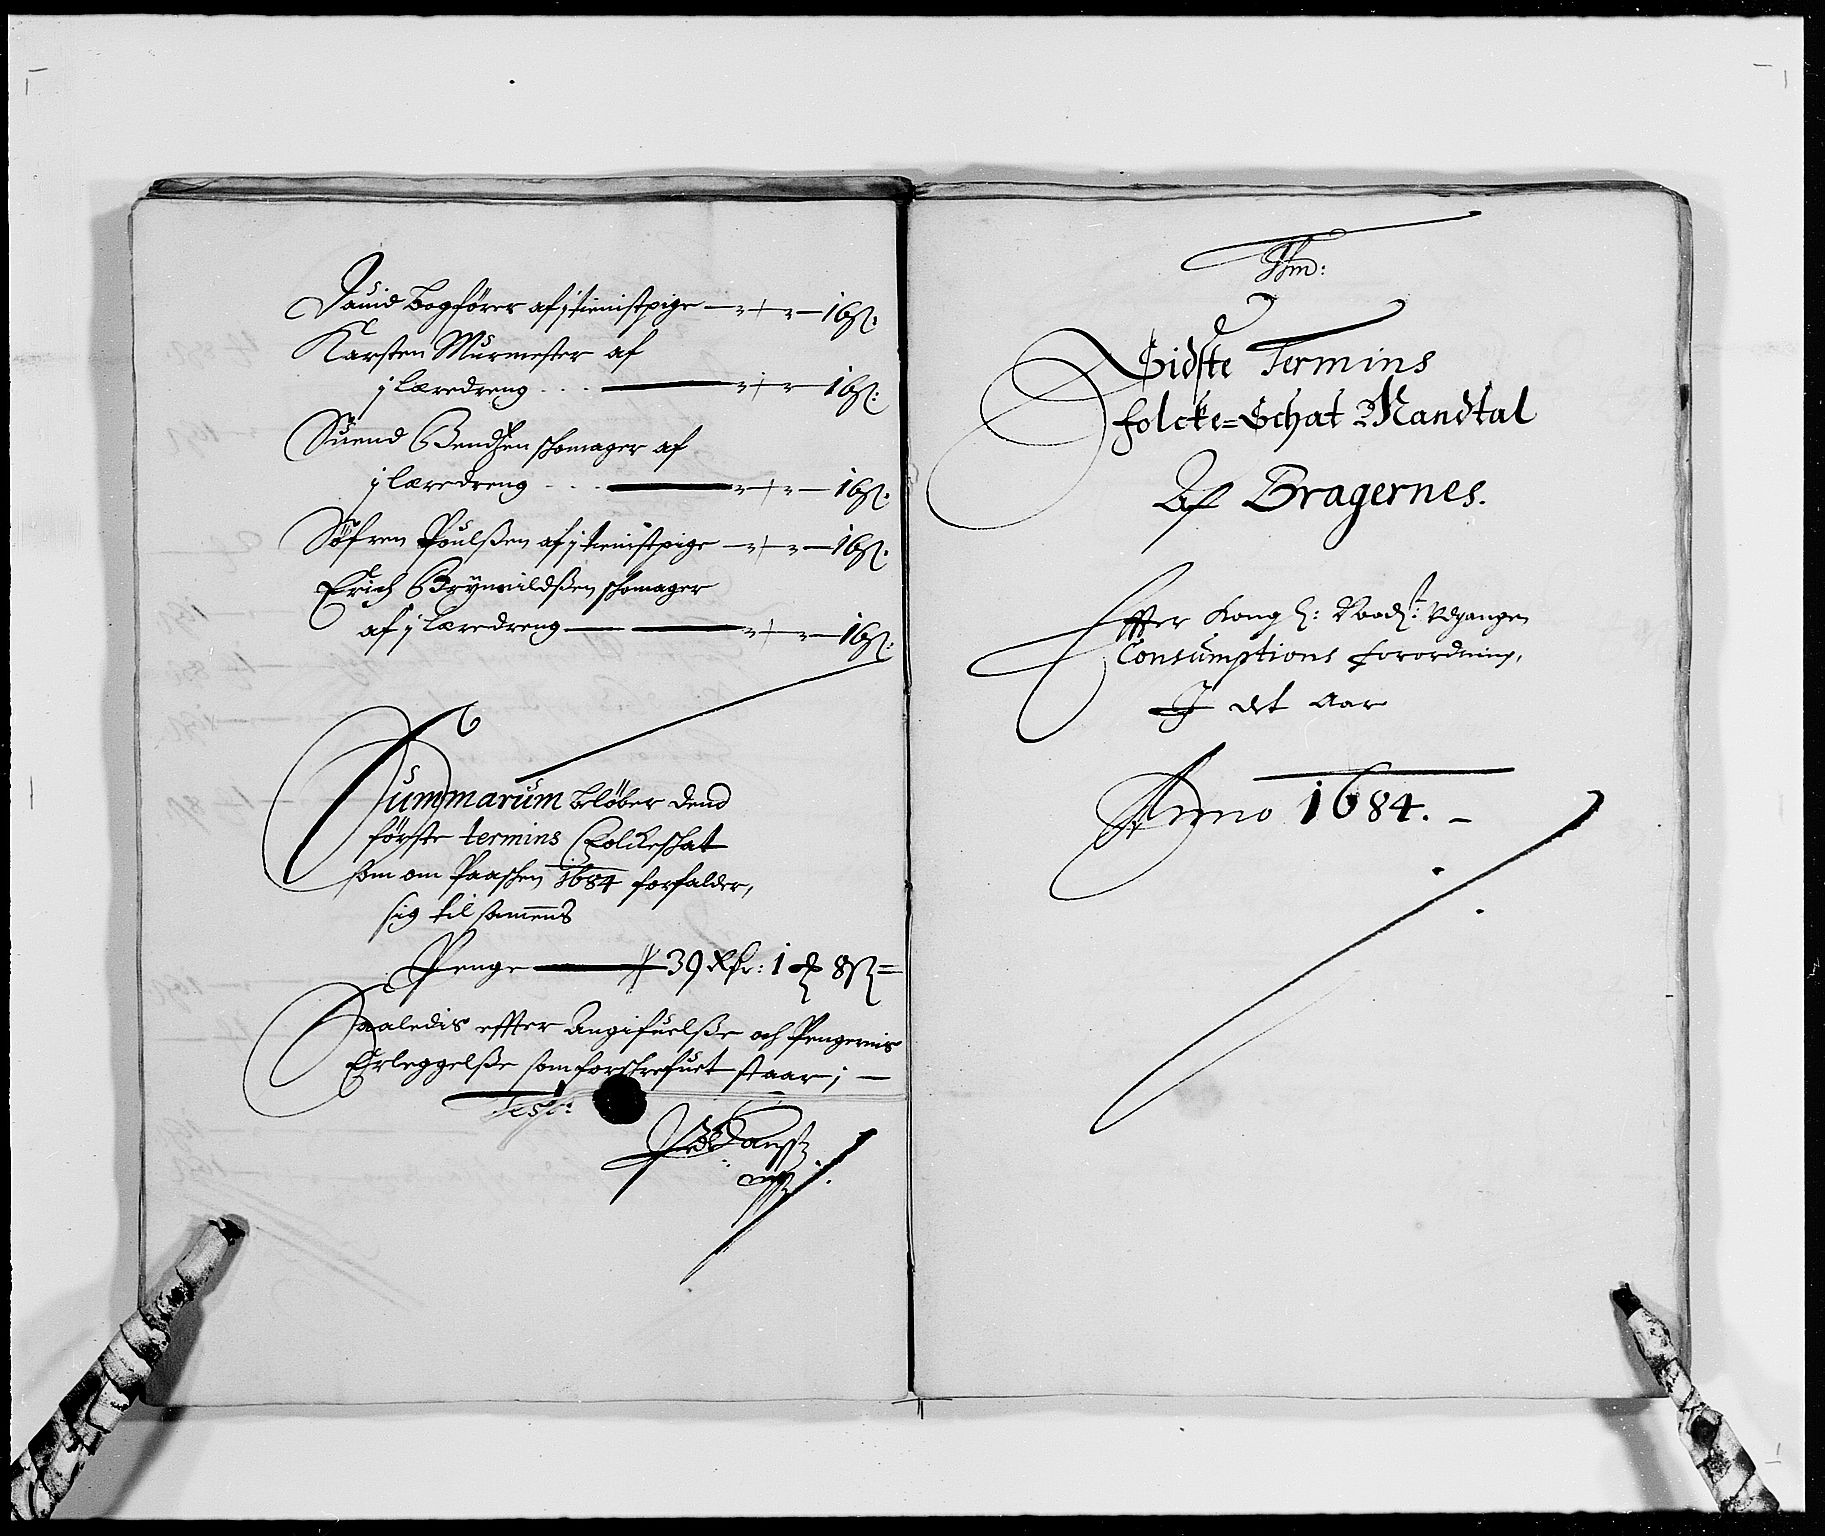 Dauid Bogförer af j tienistpige — " — " — 16 ß:
Karsten Murmester af
j læredreng . . . — " — " — 16 ß:
Suend Bendtzen skomager af
j læredreng . . . — " — " — 16 ß:
Söfren Poulsßen af j tienistpige — " — " — 16 ß:
Erich Brynnildsßen skomager
af j læredreng — " — " — 16 ß:
Summarum beløber dend
förste termins Folckeskat
som om Paasken 1684 forfalder,
sig til samens
Penge — 39 Rdr: 1 ʒ 8 ß =
Saaledis effter Angifuelsße och Pengernis
Erleggelsße som forskrefuet staar; —
Test:
Sidste Termins
folcke=Schat Mandtal
Af Bragernes.
Effter Kong l: Maÿtz: Udgangen
Consumptions forordning,
J det Aar
Anno 1684. —